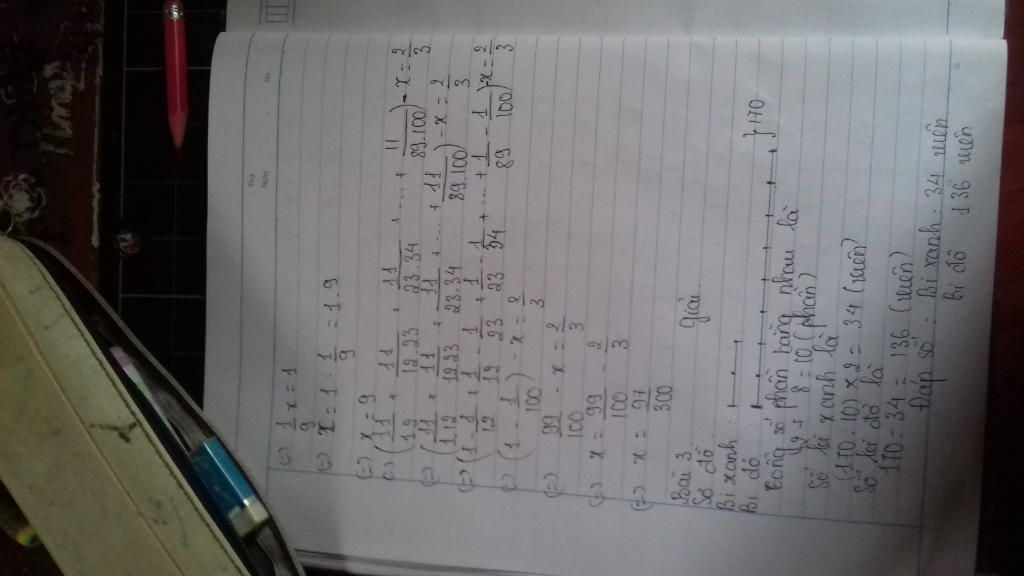 (=) 1/9 x = 1
(=) x = 1 : 1/9 = 1.9
(=) x = 9
(=) (11/12 + 11/12.23 + 11/23.34 + ... + 11/89.100) - x = 2/3
(=) (11/1.12 + 11/12.23 + 11/23.34 + ... + 11/89.100) - x = 2/3
(=) (1 - 1/12 + 1/12 - 1/23 + 1/23 - 1/34 + ... + 1/89 - 1/100) - x = 2/3
(=) (1 - 1/100) - x = 2/3
(=) 99/100 - x = 2/3
(=) x = 99/100 - 2/3
(=) x = 97/300
Bài 3 Giải
Sơ đồ
Bi xanh :
Bi đỏ 170
Tổng số phần bằng nhau là
2 + 8 = 10 (phần)
Số bi xanh là
(170 : 10) x 2 = 34 (viên)
Số bi đỏ là
170 - 34 = 136 (viên)
Đáp số : Bi xanh : 34 viên
Bi đỏ 136 viên